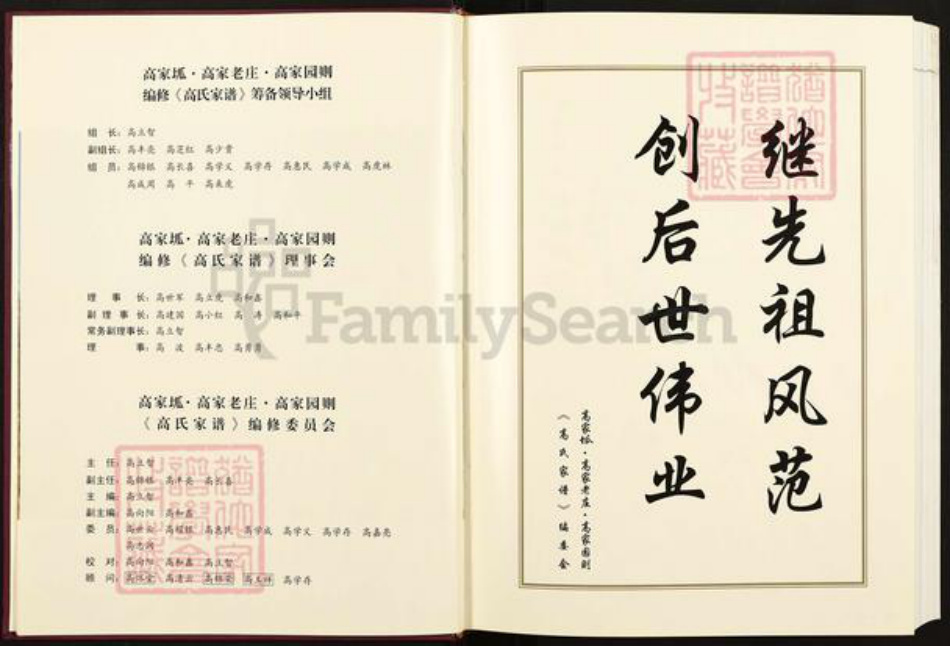 高家坬·高家老庄·高家园则
编修《高氏家谱》筹备领导小组
组 长：高立智
副组长：高丰亮 高芝红 高少贵
组 员：高锦银 高长喜 高学义 高学存 高惠民 高学成 高虎林
高成周 高 平 高来虎
高家坬·高家老庄·高家园则
编修《高氏家谱》理事会
理 事 长：高世军 高立虎 高和鑫
副 理 事 长：高建国 高小红 高 涛 高和平
常务副理事长：高立智
理 事：高 波 高丰忠
高家坬·高家老庄·高家园则
《高氏家谱》编修委员会
主 任：高立智
副主任：高锦银 高丰亮 高长喜
主 编：高立智
副主编：高向阳 高和鑫
委 员：高惠民 高学成 高学义 高学存 高嘉亮
校 对：高向阳 高和鑫 高立智
顾 问：高清云 高学存
继先祖风范
创后世伟业
高家坬·高家老庄·高家园则
《高氏家谱》编委会
FamilySearch